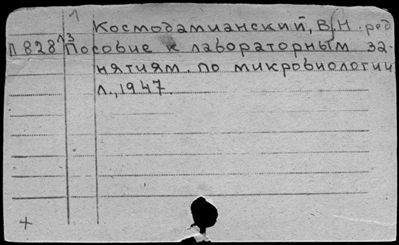 1
Космодамианский, В.Н. ред
Л828 13 Пособие к лабораторным за-
нятиям. по микробиологии
Л., 1947.
+